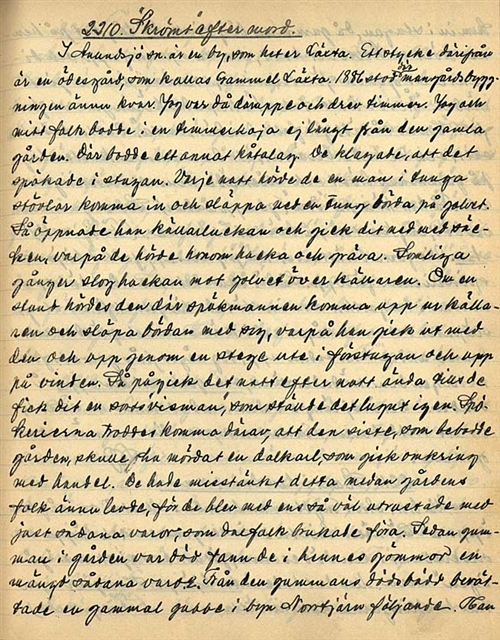 2210. Skrömt efter mord.
I Anundsjö sn. är en by, som heter Käxta. Ett stycke därifrån
är en ödesgård, som kallas Gammel Käxta. 1886 stod manngårdsbygg-
ningen ännu kvar. Jag var då däruppe och drev timmer. Jag och
mitt folk bodde i en timmerkoja ej långt från den gamla
gården. Där bodde ett annat kåtalag. De klagade, att det
spökade i stugan. Varje natt hörde de en man i tunga
stövlar komma in och släppa ned en tung börda på golvet.
Så öppnade han källarluckan och gick dit ned med säc-
ken, varpå de hörde honom hacka och gräva. Somliga
gånger slog hackan mot golvet över källaren. Om en
stund hördes den där spökmannen komma upp ur källa-
ren och släpa bördan med sig, varpå han gick ut med
den och upp genom en stege ute i förstugan och upp
på vinden. Så pågick det natt efter natt ända tills de
fick dit en sorts visman, som stände det lugnt igen. Spö-
kerierna troddes komma därav, att den siste, som bebodde
gården, skulle ha mördat en dalkarl, som gick omkring
med handel. De hade misstänkt detta medan gårdens
folk ännu levde, för de blev med ens så väl utrustade med
just sådana varor, som dalfolk brukade föra. Sedan gum-
man i gården var död fann de i hennes gömmor en
mängd sådana varor. Från den gummans dödsbädd berät-
tade en gammal gubbe i byn Norrtjärn följande. Han